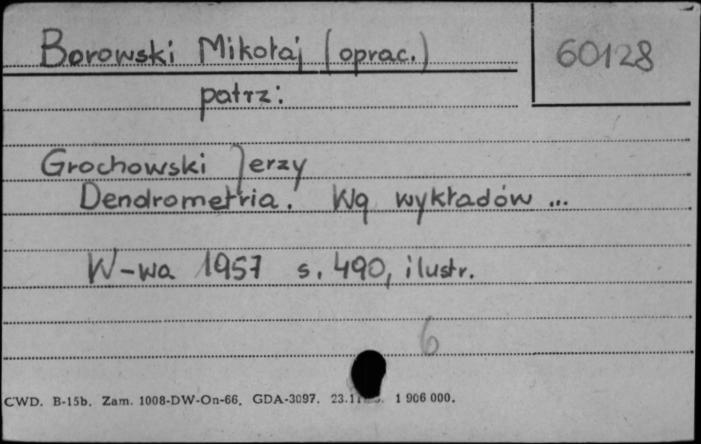 Borowski Mikołaj (oprac.) 60128
patrz:
Grochowski Jerzy
Dendrometria. Wg wykładów ...
W-wa 1957 s. 490, ilustr.
6
CWD. B-15b. Zam. 1008-DW-On-66. GDA-3097. 1 906 000.